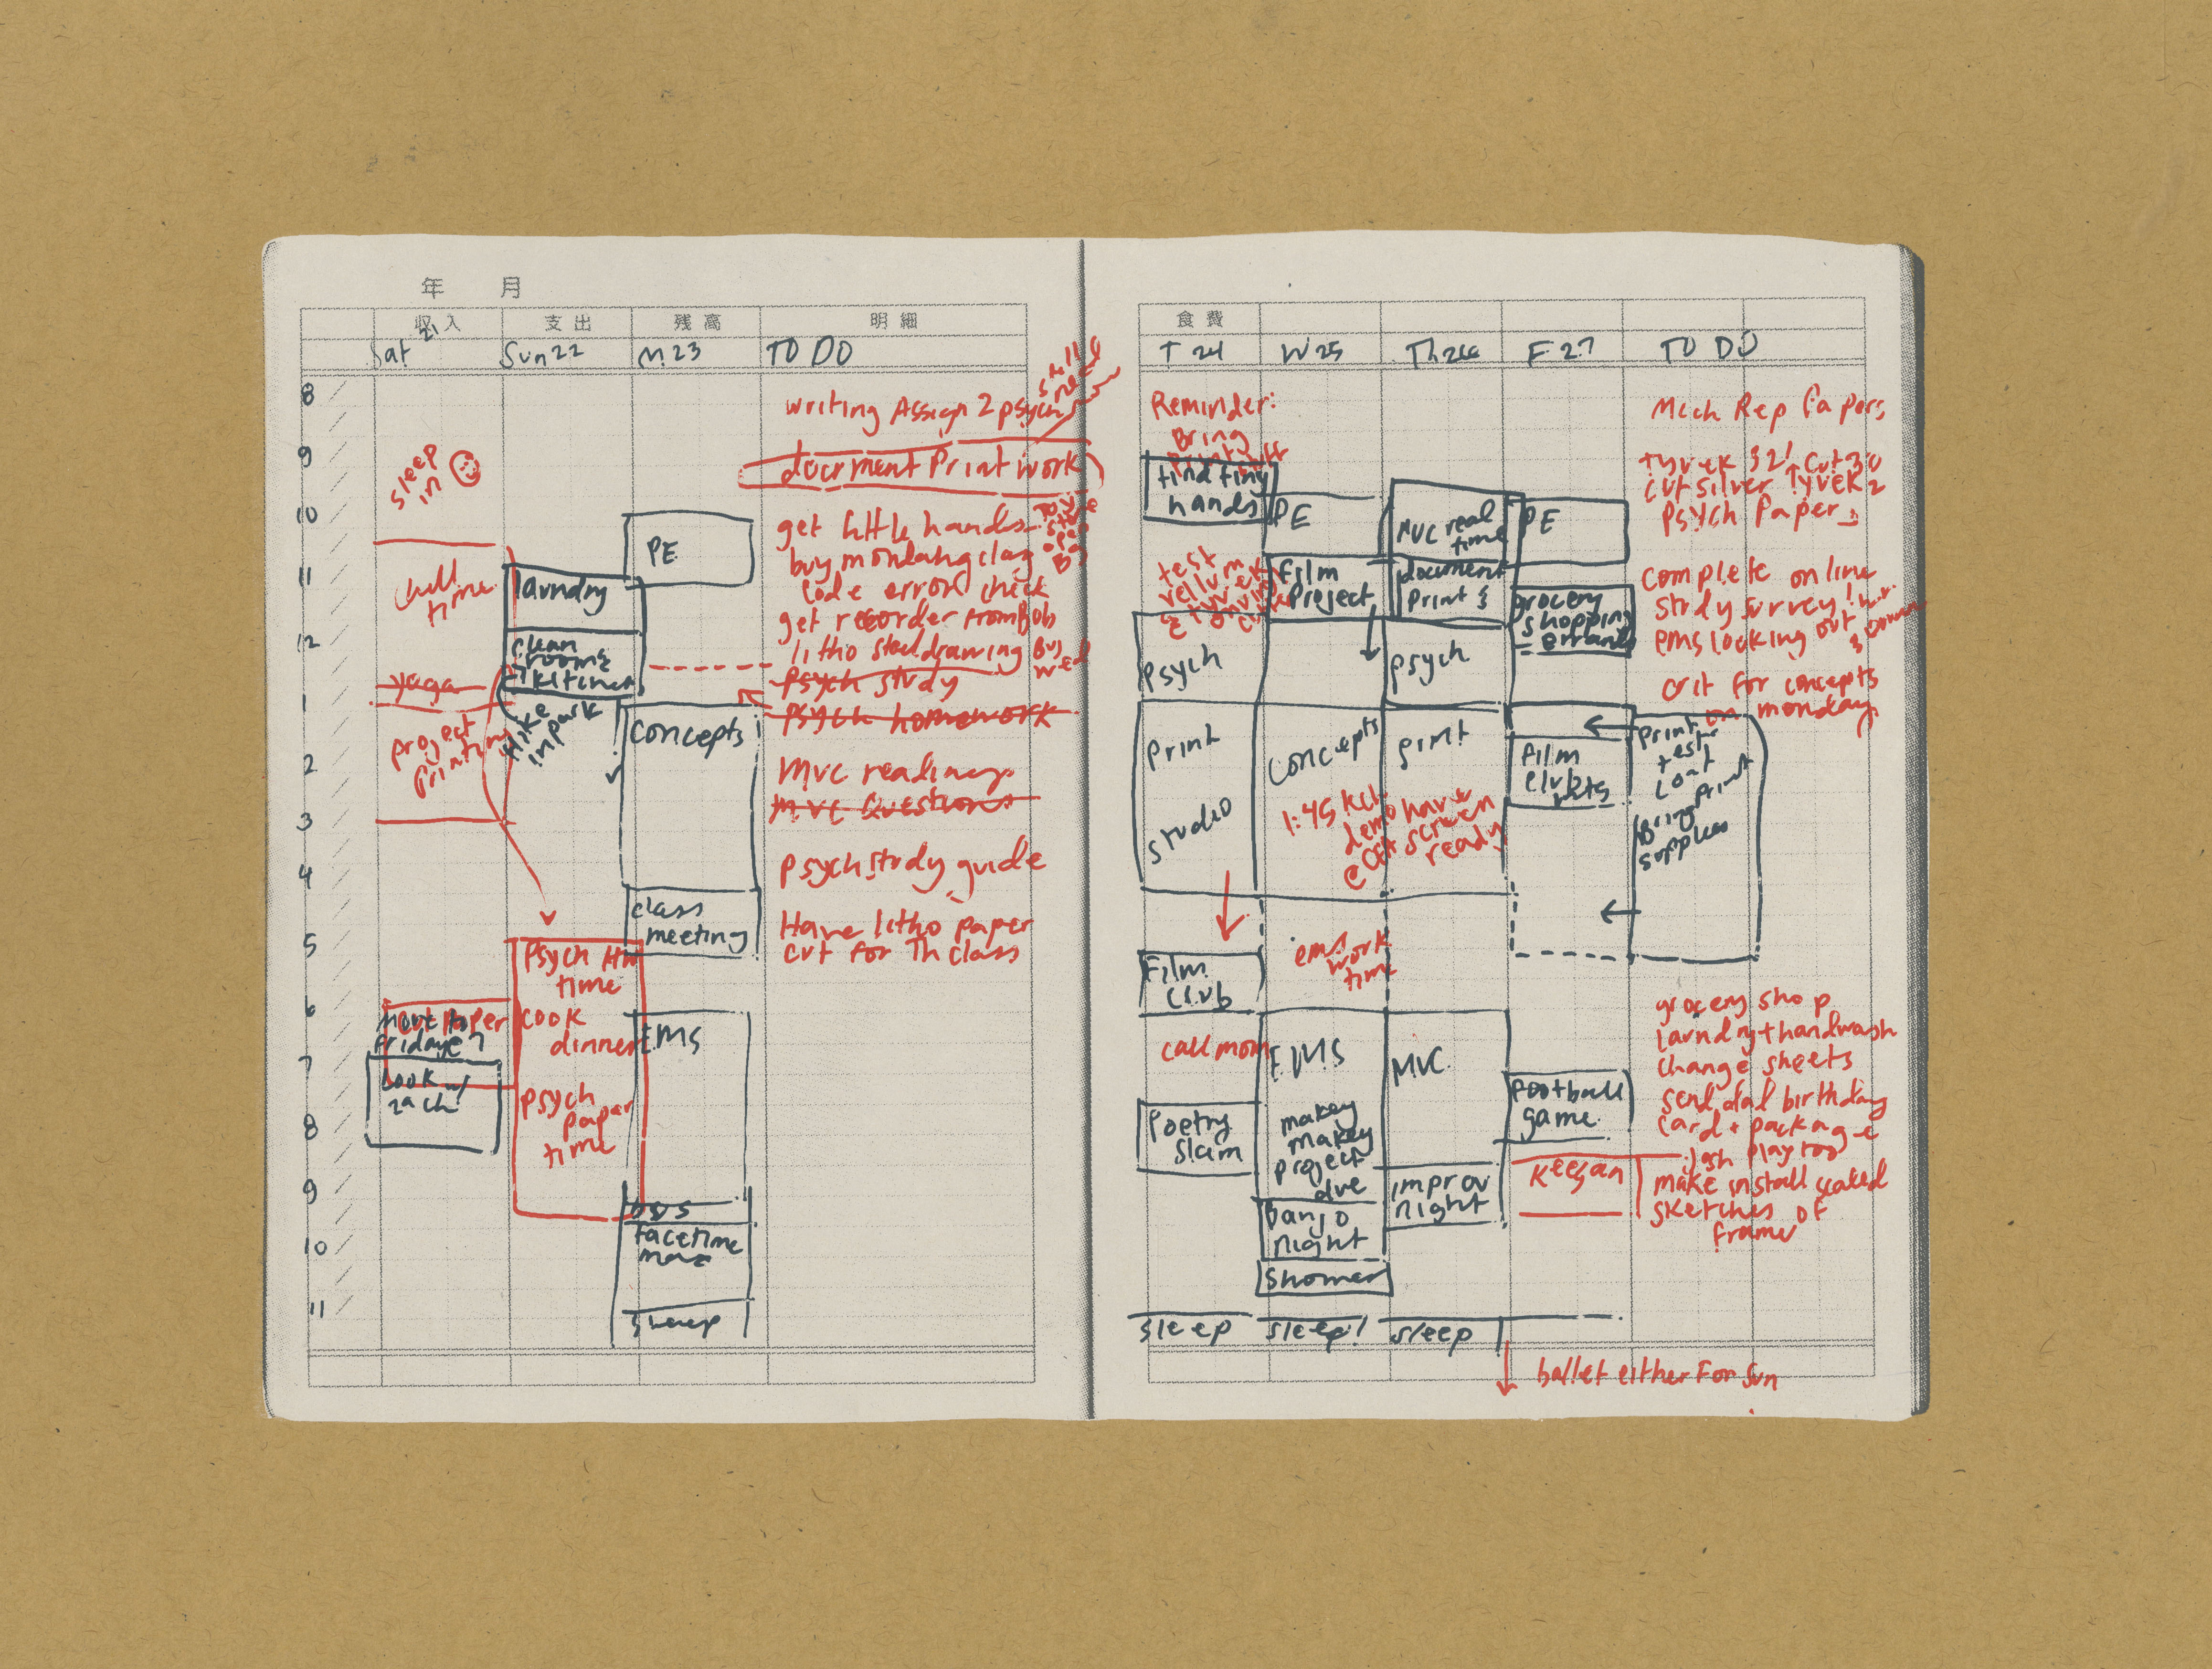 年 月
収入 支出 残高 明細
Sat 21 Sun 22 M 23 TO DO
8
9
10
11
12
1
2
3
4
5
6
7
8
9
10
11
sleep
in
chill
time
yaga
project
printing
cut paper
move to
friday?
cook w/
zach
laundry
clean
room &
kitchen
Hike
in park
Psych HW
time
cook
dinner
psych
paper
time
PE
concepts
class
meeting
EMS
facetime
sleep
writing Assign 2 psych
still
need
document Print work
get little hands
buy monlang clay
code error check
get recorder from Bob
litho steel drawing
BUS
wed
Psych study
Psych homework
MVC readings
MVC Questions
Psych study guide
Have litho paper
cut for Th class
食費
T 24 W 25 Th 26 F 27 TO DO
Reminder:
Bring
find tiny
hands
test
vellum
& tyvek
psych
Print
studio
Film
club
call mom
Poetry
Slam
sleep
PE
Film
Project
concepts
1:45
demo have
screen
ready
ems
work
time
EMS
makey
makey
project
due
Banjo
night
shower
sleep!
MVC real
time
document
print
psych
print
MVC
improv
night
sleep
PE
grocery
shopping
errands
film
club
football
game
Keegan
ballet either F or Sun
Mich Rep Papers
Tyvek 32! cut 30
cut silver Tyvek 2
Psych Paper
complete online
study survey!
EMS looking out
crit for concepts
on monday
Print
test
Loat
Bring Print
supplies
grocery shop
laundry + handwash
change sheets
send dad birthday
card + package
josh play too
make install scaled
sketches of
frame